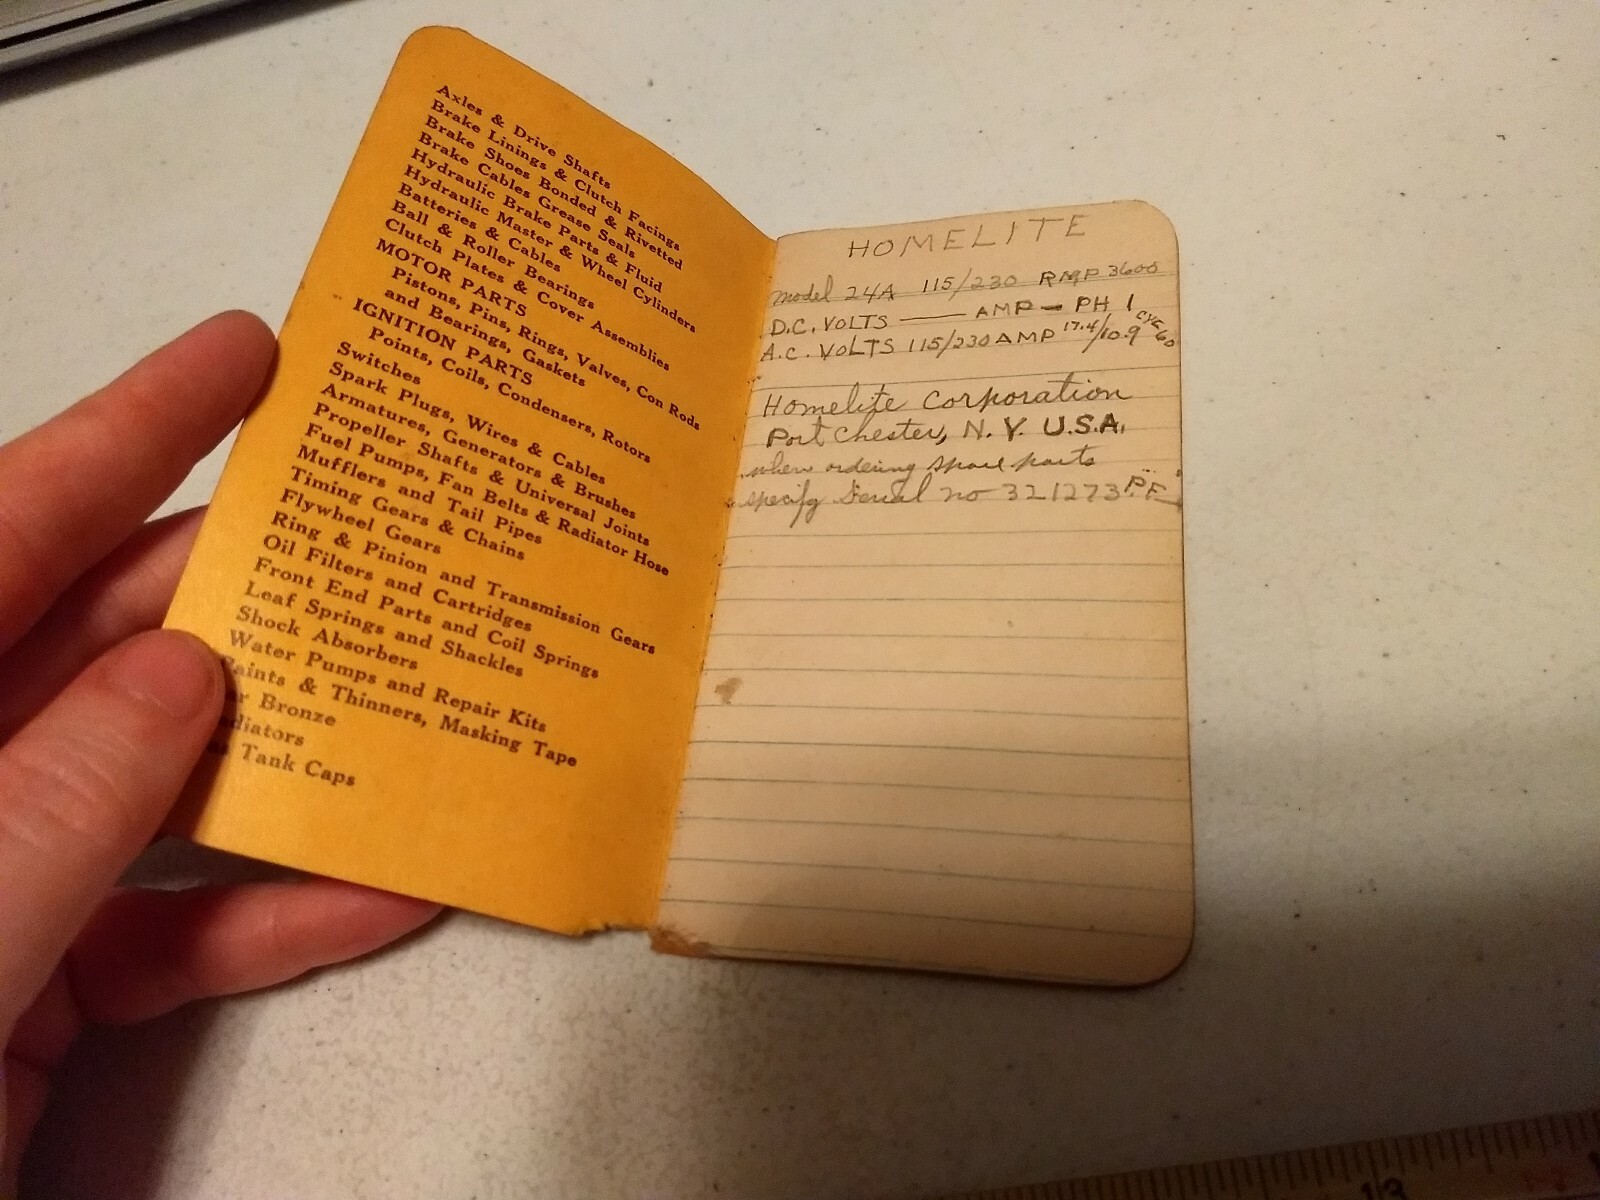 Axles & Drive Shafts
Brake Linings & Clutch Facings
Brake Shoes Bonded & Rivetted
Brake Cables Grease Seals
Hydraulic Brake Parts & Fluid
Hydraulic Master & Wheel Cylinders
Batteries & Cables
Ball & Roller Bearings
Clutch Plates & Cover Assemblies
MOTOR PARTS
Pistons, Pins, Rings, Valves, Con Rods
and Bearings, Gaskets
IGNITION PARTS
Points, Coils, Condensers, Rotors
Switches
Spark Plugs, Wires & Cables
Armatures, Generators & Brushes
Propeller Shafts & Universal Joints
Fuel Pumps, Fan Belts & Radiator Hose
Mufflers and Tail Pipes
Timing Gears & Chains
Flywheel Gears
Ring & Pinion and Transmission Gears
Oil Filters and Cartridges
Front End Parts and Coil Springs
Leaf Springs and Shackles
Shock Absorbers
Water Pumps and Repair Kits
Paints & Thinners, Masking Tape
Bronze
Tank Caps
HOMELITE
model 24A 115/230 RMP 3600
D.C. VOLTS — AMP — PH 1
A.C. VOLTS 115/230 AMP 17.4/10.9 CYC 60
Homelite Corporation
Port Chester, N.Y. U.S.A.
when ordering spare parts
specify Serial no 321273 PE
13